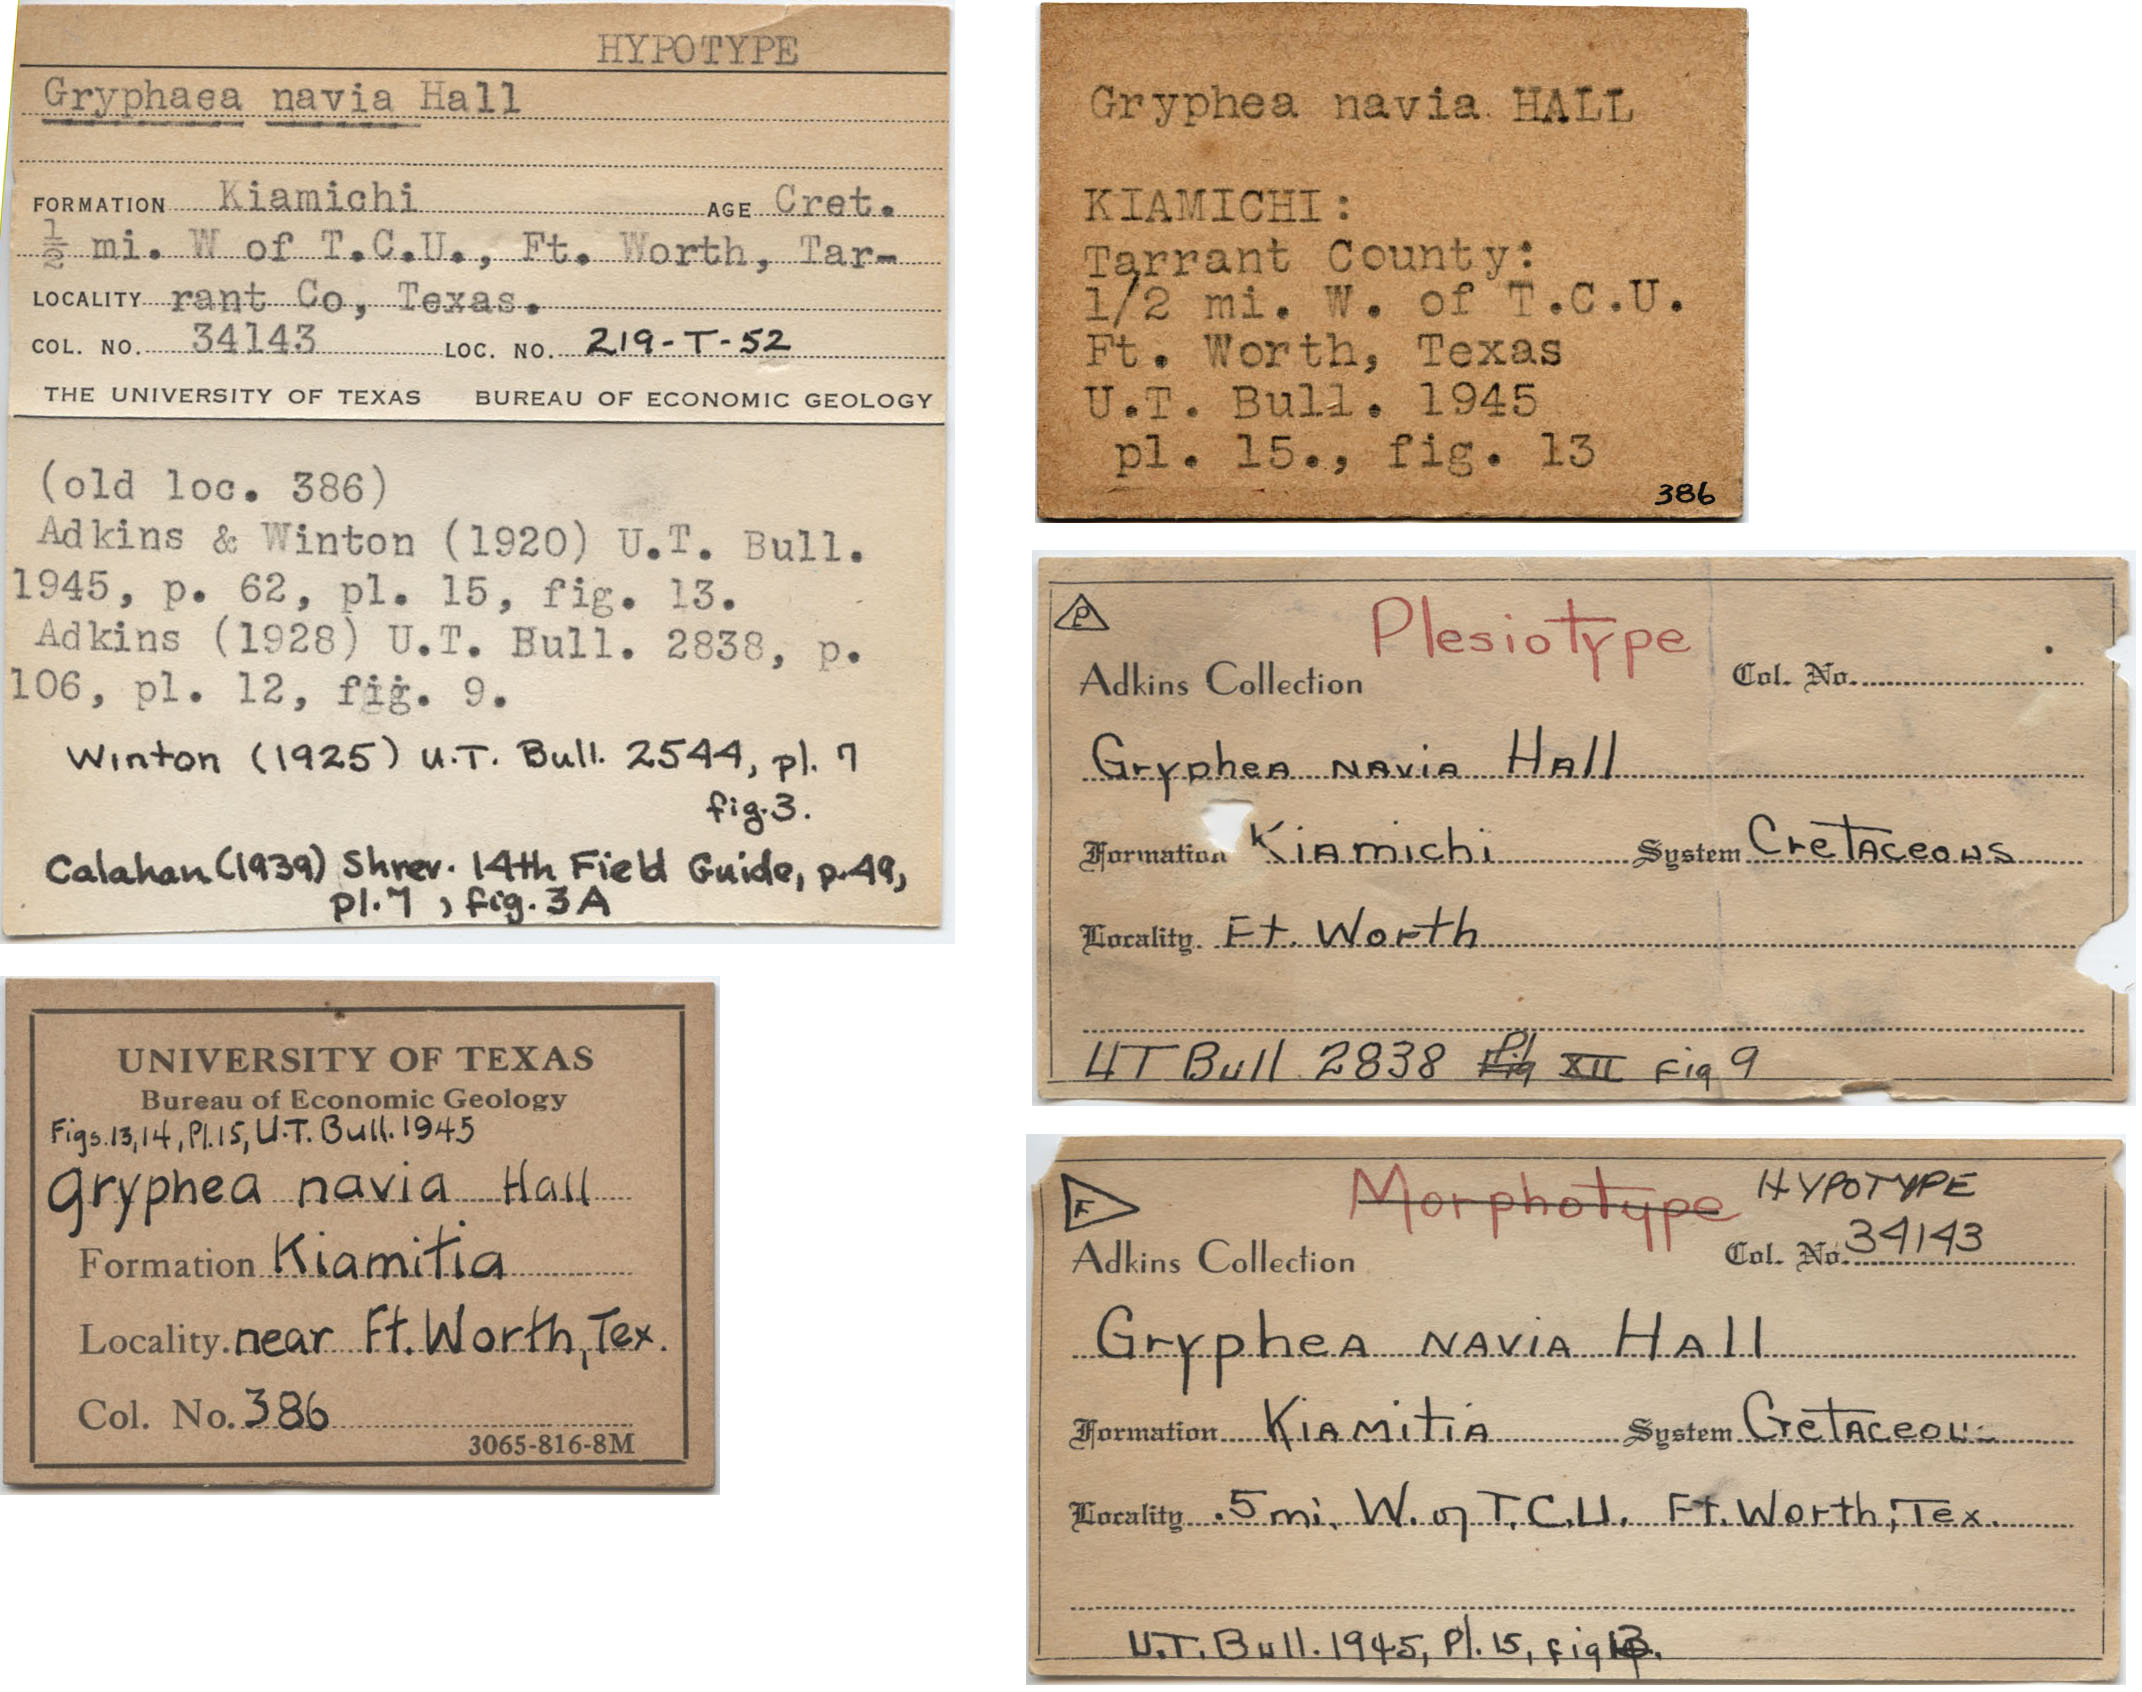 HYPOTYPE
Gryphaea navia Hall
FORMATION Kiamichi AGE Cret.
½ mi. W of T.C.U., Ft. Worth, Tar-
LOCALITY rant Co, Texas.
COL. NO. 34143 LOC. NO. 219-T-52
THE UNIVERSITY OF TEXAS BUREAU OF ECONOMIC GEOLOGY
(old loc. 386)
Adkins & Winton (1920) U.T. Bull.
1945, p. 62, pl. 15, fig. 13.
Adkins (1928) U.T. Bull. 2838, p.
106, pl. 12, fig. 9.
Winton (1925) U.T. Bull. 2544, pl. 7
fig. 3.
Calahan (1939) Shrev. 14th Field Guide, p. 49,
pl. 7, fig. 3A
UNIVERSITY OF TEXAS
Bureau of Economic Geology
Figs. 13, 14, Pl. 15, U.T. Bull. 1945
Gryphea navia Hall
Formation Kiamitia
Locality. near Ft. Worth, Tex.
Col. No. 386
3065-816-8M
Gryphea navia HALL
KIAMICHI:
Tarrant County:
1/2 mi. W. of T.C.U.
Ft. Worth, Texas
U.T. Bull. 1945
pl. 15., fig. 13
386
P
Plesiotype
Adkins Collection Col. No.
Gryphea navia Hall
Formation Kiamichi System Cretaceous
Locality. Ft. Worth
UT Bull 2838 Fig Pl XII Fig 9
F
Morphotype HYPOTYPE
Adkins Collection Col. No. 34143
Gryphea navia Hall
Formation Kiamitia System Cretaceou
Locality .5 mi. W. of T.C.U. Ft. Worth, Tex.
U.T. Bull. 1945, Pl. 15, fig 13.